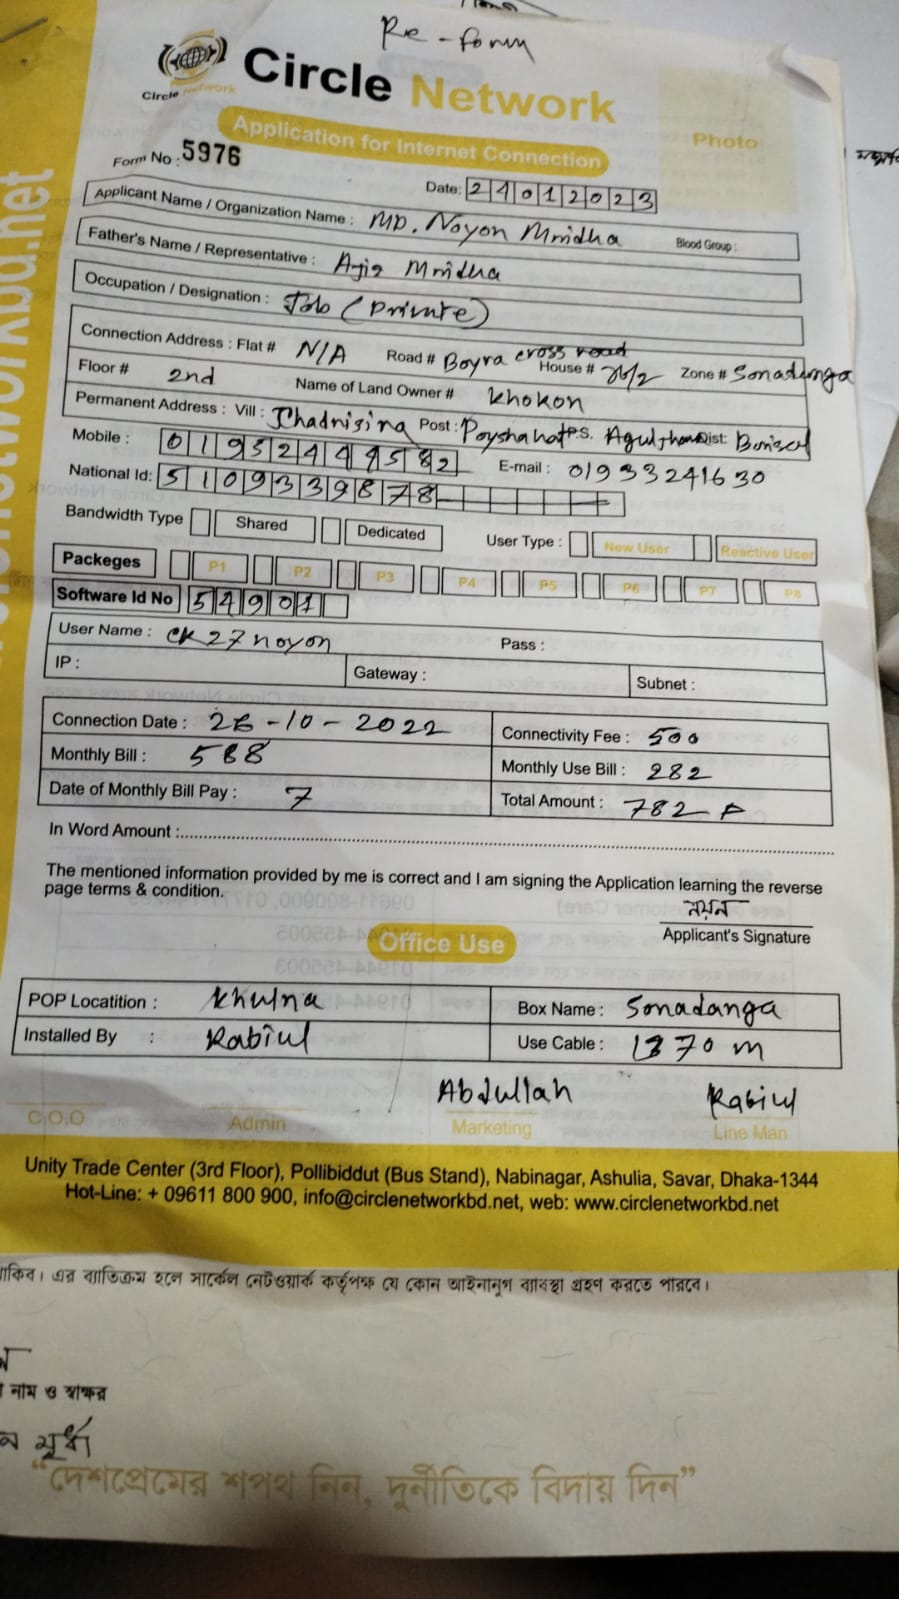 Re-form
Circle Network
Circle Network
Application for Internet Connection
Photo
Form No : 5976
Date: 24012023
Applicant Name / Organization Name : MD. Noyon Mridha Blood Group :
Father's Name / Representative : Mridha
Occupation / Designation : Job (Private)
Connection Address : Flat # N/A Road # Boyra cross road House # Zone # Sonadanga
Floor # 2nd Name of Land Owner # Khokon
Permanent Address : Vill : Post : P.S. Dist:
Mobile : E-mail : 01933241630
National Id: 5109339878
Bandwidth Type Shared Dedicated User Type : New User Reactive User
Packeges P1 P2 P3 P4 P5 P6 P7 P8
Software Id No 54901
User Name : Pass :
IP : Gateway : Subnet :
Connection Date : Connectivity Fee : 500
Monthly Bill : 588 Monthly Use Bill : 282
Date of Monthly Bill Pay : 7 Total Amount : 782
In Word Amount :
The mentioned information provided by me is correct and I am signing the Application learning the reverse
page terms & condition.
নয়ন
Applicant's Signature
Office Use
POP Locatition : Khulna Box Name : Sonadanga
Installed By : Rabiul Use Cable : 1370 m
Abdullah Rabiul
C.O.O Admin Marketing Line Man
Unity Trade Center (3rd Floor), Pollibiddut (Bus Stand), Nabinagar, Ashulia, Savar, Dhaka-1344
Hot-Line: + 09611 800 900, info@circlenetworkbd.net, web: www.circlenetworkbd.net
এর ব্যাতিক্রম হলে সার্কেল নেটওয়ার্ক কর্তৃপক্ষ যে কোন আইনানুগ ব্যাবস্থা গ্রহণ করতে পারবে।
নাম ও স্বাক্ষর
“দেশপ্রেমের শপথ নিন, দুর্নীতিকে বিদায় দিন”